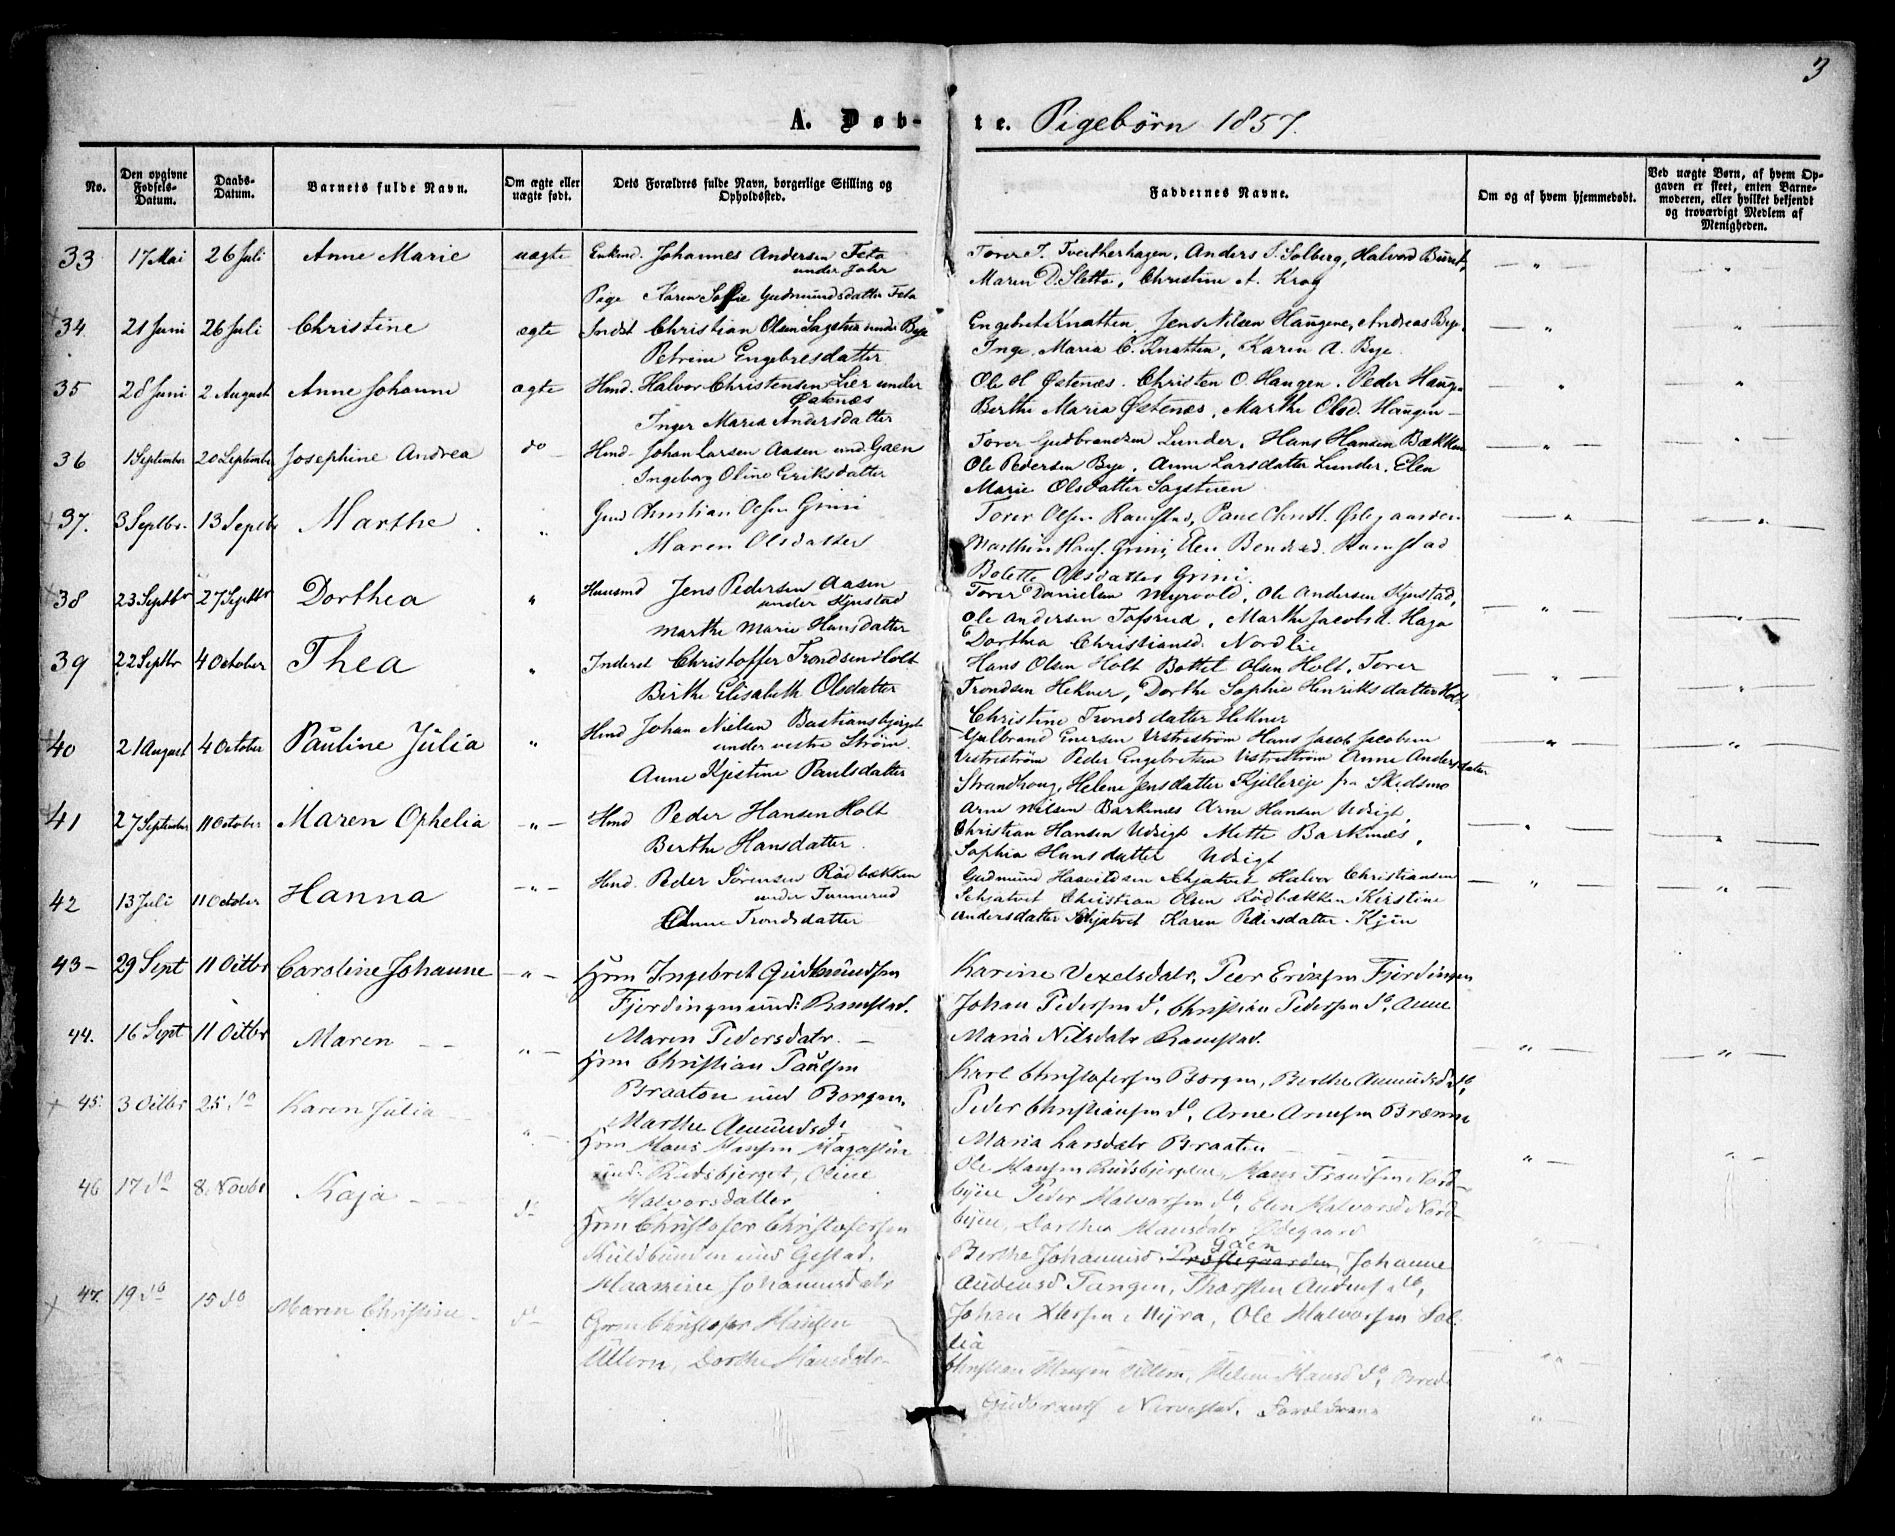 3
A. Døbte. Pigebørn 1857.
No.
Den opgivne Fødsels-Datum.
Daabs-Datum.
Barnets fulde Navn.
Om ægte eller uægte født.
Dets Forældres fulde Navn, borgerlige Stilling og Opholdssted.
Faddernes Navne.
Om og af hvem hjemmedøbt.
Ved uægte Børn, af hvem Opgaven er skeet, enten Barnemoderen, eller hvilket bekjendt og troværdigt Medlem af Menigheden.
33 17 Mai 26 Juli Anne Marie uægte Enkmd. Johannes Andersen Feta
under Fohr
Pige Karen Sofie Gudmundsdatter Feta
Torer T. Tveitherhagen, Anders S. Solberg, Halvord
Maren D. Slette, Christine A. Krog
34 21 Juni 26 Juli Christine ægte Indst Christian Olsen Sagstuen under Bye
Petrine Engebresdatter
Engebret Knatten, Jens Nilsen Haugene, Andreas Bye
Inge Maria C. Knatten, Karin A. Bye
35 28 Juni 2 August Anne Johanne ægte Hmd. Halvor Christensen Lier under
Østenæs
Inger Maria Andersdatter
Ole H Østenæs. Christen O. Haugen. Peder Haugen
Berthe Maria Østenæs, Marthe Olsd. Haugen
36 1 September 20 September Josephine Andrea do Hmd. Johan Larsen Aasen und. Gaen
Ingeborg Oline Eriksdatter
Torer Gudbrandsen Lunder, Hans Hansen Bækken
Ole Pedersen Bye, Anne Larsdatter Lunder, Elen
Marie Olsdatter Sagstuen
37. 3 Septbr. 13 Septbr Marthe " Christian Olsen Grini
Maren Olsdatter
Torer Olsen Ramstad,
Marthin Hans. Grini, Elen Bendsd. Ramstad
Bolette Olsdatter Grini.
38 23 Septbr 27 Septbr Dorthea " Huusmd Jens Pedersen Aasen
under Kjustad
Marthe Marie Hansdatter
Torer Danielsen Myrvold, Ole Andersen Kjustad,
Ole Andersen Tofsrud, Marthe Jacobsd. Haga
Dorthea Christiansd. Nordlie
39 22 Septbr 4 October Thea " Inderst Christoffer Trondsen Holt
Birthe Elisabeth Olsdatter
Hans Olsen Holt Bottel Olsen Holt, Torer
Trondsen Hekner, Dorthe Sophie Henriksdatter Holt
Christine Trondsdatter Hekner
40 21 August 4 October Pauline Julia " Hmd Johan Nielsen Bastiansbjerget
under vestre Strøm.
Anne Kjestine Paulsdatter
Gulbrand Enersen Vestreström Hans Jacob Jacobsen
Vestreström Peder Engebretsen Vestreström Anne Andersdatter
Strandhoug, Helene Jensdatter Kjillereje fra Skedsmo
41 27 September 11 October Maren Ophelia " Hmd Peder Hansen Holt
Berthe Hansdatter
Arne Nilsen Barknes Arne Hansen Udsigt,
Christian Hansen Udsigt Mette Barknæs,
Sophia Hansdatter Udsigt
42 13 Juli 11 October Hanna " Hmd. Peder Sørensen Rödbækken
under Tunnerud
Anne Trondsdatter
Gudmund Haavildsen Schjatvet Halvor Christiansen
Schjatvet Christian Olsen Rödbækken Kirstine
Andersdatter Schjatvet Karen Pedersdatter
43 29 Sept 11 Octbr Caroline Johanne " Hmd Ingebret Gudbrandsen
Fjordingen und: Ramstad.
Maren Pedersdatr.
Karine Vexelsdatr, Peer Eriksen Fjordingen
Johan Pedersen do, Christian Pedersen do, Anne
Maria Nilsdatr Ramstad.
44. 16 Sept 11 Octbr Maren " Hmd Christian Paulsen
Braaten und Borgen,
Marthe Amundsd.
Karl Christofersen Borgen, Berthe Amundsd do,
Peder Christiansen do, Arne Arnesen
Maria Larsdatr Braaten
45. 3 Octbr 25 do Karen Julia " Hmd Hans Hansen
und. Rudsbjerget, Oline
Halvorsdatter
Ole Hansen Rudsbjerget, Hans Trondsen Nord-
byen Peder Halvorsen do, Elen Halvorsd Nord-
byen, Dorthea Hansdatr Ødegaard
46 17 do 8. Novbr Kaja do Hmd Christofer Christofersen
und Gjestad,
Johannesdatr
Berthe Johannesd Gaen Johanne
Audensd Tangen, Thorsten Audens. do,
Johan Myra, Ole Halvorsen Sol-
lia
47. 19 do 15 do Maren Christine do Christofer Hansen
Ullern, Dorthe Hansdatr
Christian Hansen Ullern, Helene Hansd do,
Gudbrand